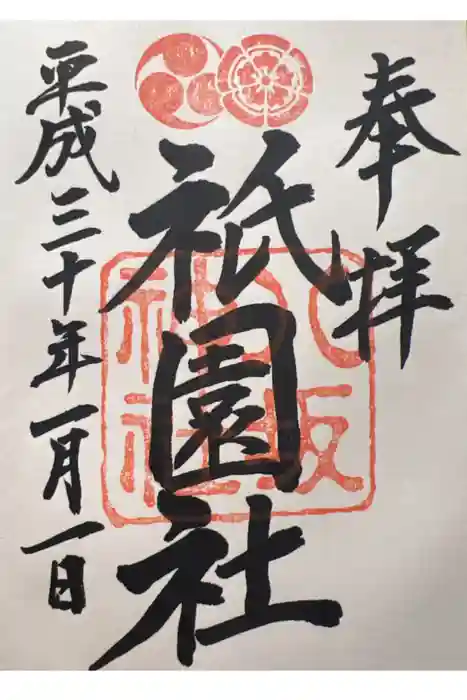 奉拝
祇園社
八坂神社
平成三十年一月一日